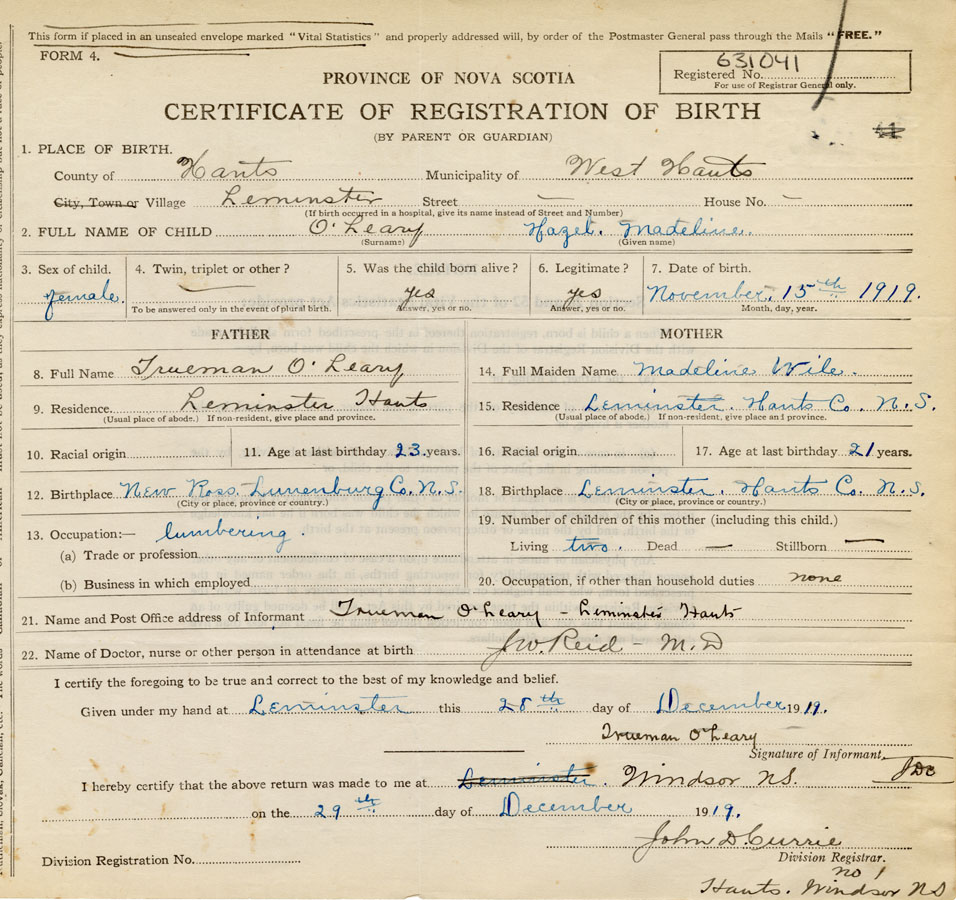 This form if placed in an unsealed envelope marked "Vital Statistics" and properly addressed will, by order of the Postmaster General pass through the Mails "FREE."
FORM 4.
631041
Registered No.
For use of Registrar General only.
PROVINCE OF NOVA SCOTIA
CERTIFICATE OF REGISTRATION OF BIRTH
(BY PARENT OR GUARDIAN)
1. PLACE OF BIRTH.
County of Hants Municipality of West Hants
City, Town or Village Leminster Street — House No. —
(If birth occurred in a hospital, give its name instead of Street and Number)
2. FULL NAME OF CHILD O'Leary Hazel. Madeline.
(Surname) (Given name)
3. Sex of child. 4. Twin, triplet or other? 5. Was the child born alive? 6. Legitimate? 7. Date of birth.
female. yes yes November. 15th 1919.
To be answered only in the event of plural birth. Answer, yes or no. Answer, yes or no. Month, day, year.
FATHER MOTHER
8. Full Name Trueman O'Leary 14. Full Maiden Name Madeline Wile.
9. Residence Leminster Hants 15. Residence Leminster. Hants Co. N.S.
(Usual place of abode.) If non-resident, give place and province. (Usual place of abode.) If non-resident, give place and province.
10. Racial origin 11. Age at last birthday 23 years. 16. Racial origin 17. Age at last birthday 21 years.
12. Birthplace New Ross. Lunenburg Co. N.S. 18. Birthplace Leminster. Hants Co. N.S.
(City or place, province or country.) (City or place, province or country.)
13. Occupation:— lumbering. 19. Number of children of this mother (including this child.)
(a) Trade or profession Living two. Dead — Stillborn —
(b) Business in which employed 20. Occupation, if other than household duties none
21. Name and Post Office address of Informant Trueman O'Leary - Leminster Hants
22. Name of Doctor, nurse or other person in attendance at birth J.W. Reid - M.D
I certify the foregoing to be true and correct to the best of my knowledge and belief.
Given under my hand at Leminster this 28th day of December 1919.
Trueman O'Leary
Signature of Informant.
I hereby certify that the above return was made to me at Leminster. Windsor N.S.
on the 29th day of December 1919.
John D. Currie
Division Registration No. Division Registrar.
no 1
Hants. Windsor NS